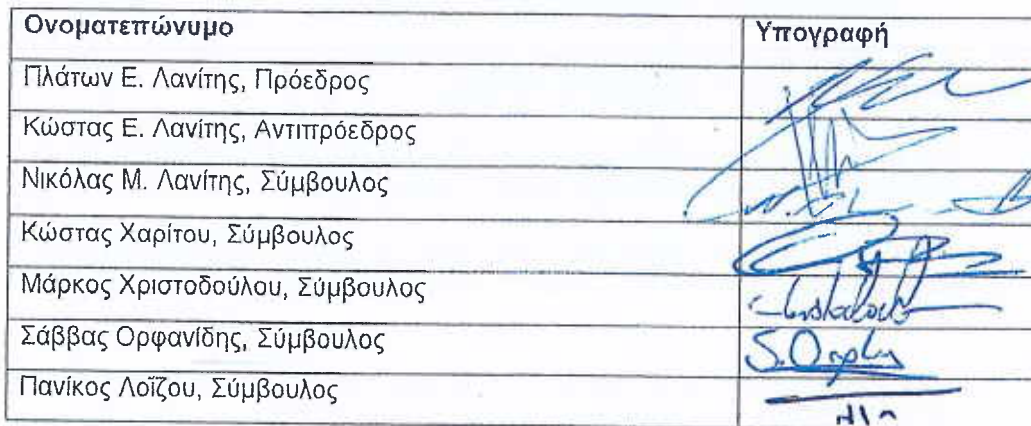 Ονοματεπώνυμο Υπογραφή
Πλάτων Ε. Λανίτης, Πρόεδρος
Κώστας Ε. Λανίτης, Αντιπρόεδρος
Νικόλας Μ. Λανίτης, Σύμβουλος
Κώστας Χαρίτου, Σύμβουλος
Μάρκος Χριστοδούλου, Σύμβουλος
Σάββας Ορφανίδης, Σύμβουλος
Πανίκος Λοΐζου, Σύμβουλος